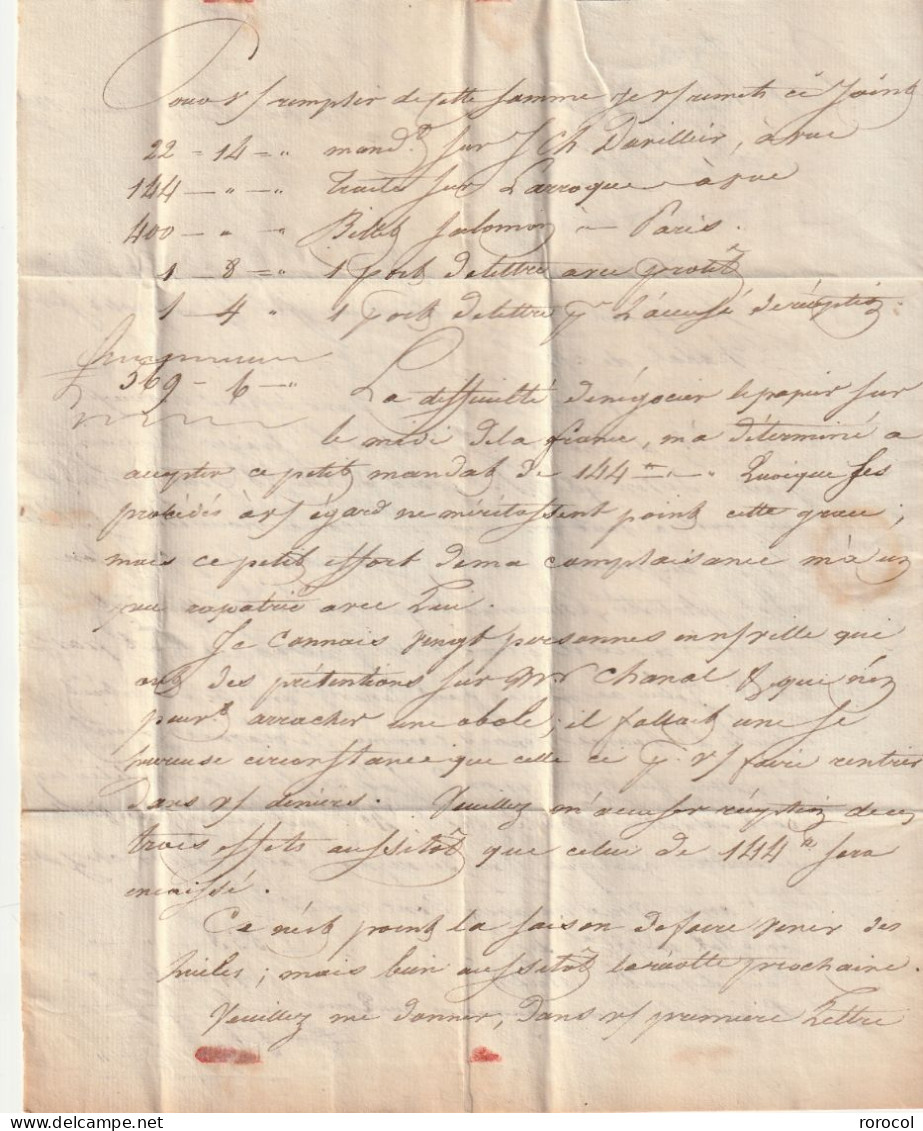 Pour vs remplir de cette somme je vs remets ci Joint
22 - 14 - " mandt sur J Ch Davillier, à vue
144 - " - " traite sur Larroque à vue
400 - " - " Billet Salomon à Paris.
1 - 8 - " 1 port de lettre avec protêt
1 - 4 " 1 port de lettre pr L'accusé de réception
569 - 6 - " La difficulté de négocier le papier sur
le midi de la france, m'a déterminé a
accepter ce petit mandat de 144 " " Quoique ses
procédés à vs égard ne méritassent point cette grace;
mais ce petit effort de ma complaisance m'a un
peu rapatrié avec Lui.
Je connais vingt personnes en vs ville qui
ont des prétentions sur Mr Chanal & que n'en
peuvt arracher une obole; il fallait une se
heureuse circonstance que celle ci pr vs faire rentrer
dans vs deniers. Veuillez m'accuser réception de ces
trois effets aussitôt que celui de 144 sera
encaissé.
Ce n'est point la saison de faire venir des
huiles; mais bien aussitôt la récolte prochaine.
Veuillez me donner, dans vs premiere Lettre
rorocol